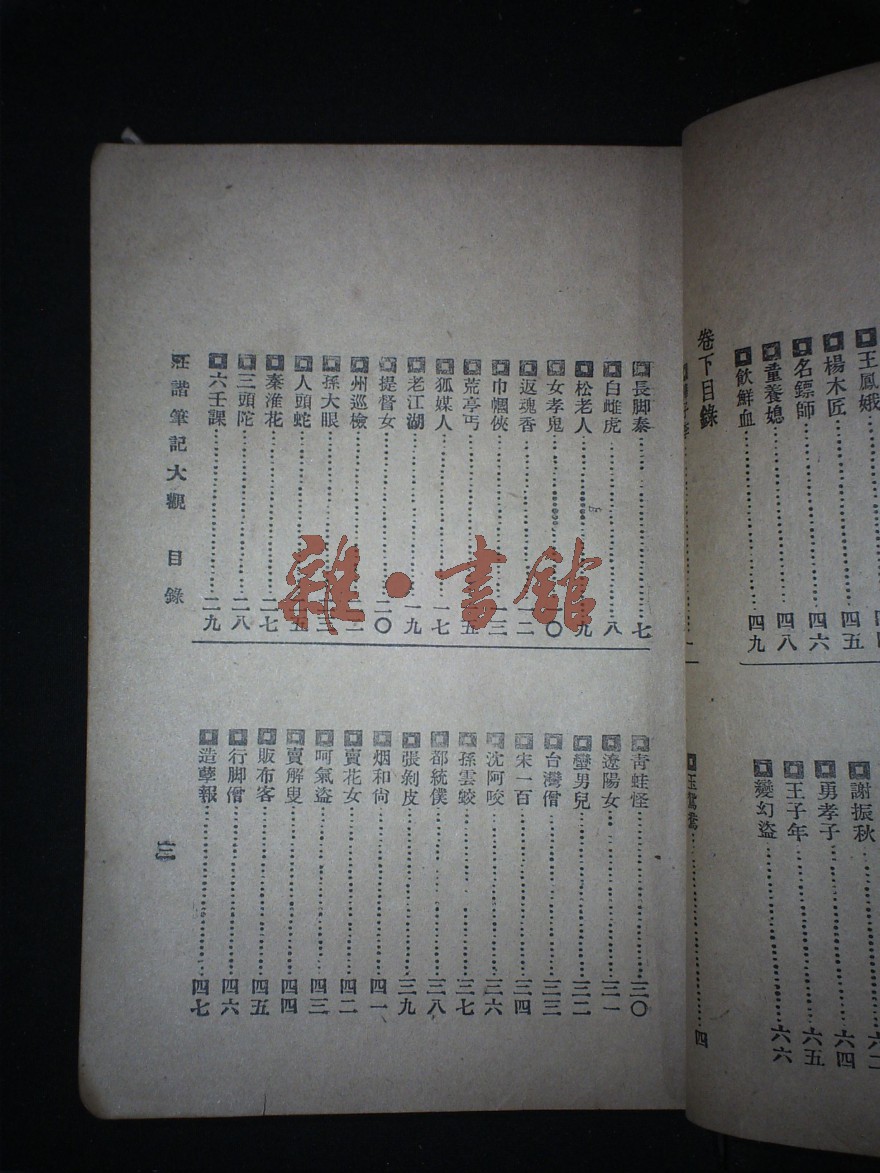 王鳳娥
楊木匠 四五
名鏢師 四六
童養媳 四八
飲鮮血 四九
謝振秋 六二
勇孝子 六四
王子年 六五
變幻盜 六六
卷下目錄
玉鴛鴦 四
長脚秦 七
白雌虎 八
松老人 九
女孝鬼 一〇
返魂香 一二
巾幗俠 一三
荒亭丐 一五
狐媒人 一七
老江湖 一九
提督女 二〇
州巡檢 二二
孫大眼 二三
人頭蛇 二五
秦淮花 二七
三頭陀 二八
六壬課 二九
青蛙怪 三〇
遼陽女 三一
蠻男兒 三二
台灣僧 三三
宋一百 三四
沈阿咬 三六
孫雲蛟 三七
都統僕 三八
張剝皮 三九
烟和尙 四一
賣花女 四二
呵氣盜 四三
賣解叟 四四
販布客 四五
行脚僧 四六
造孽報 四七
莊諧筆記大觀 目錄
三
雜·書館